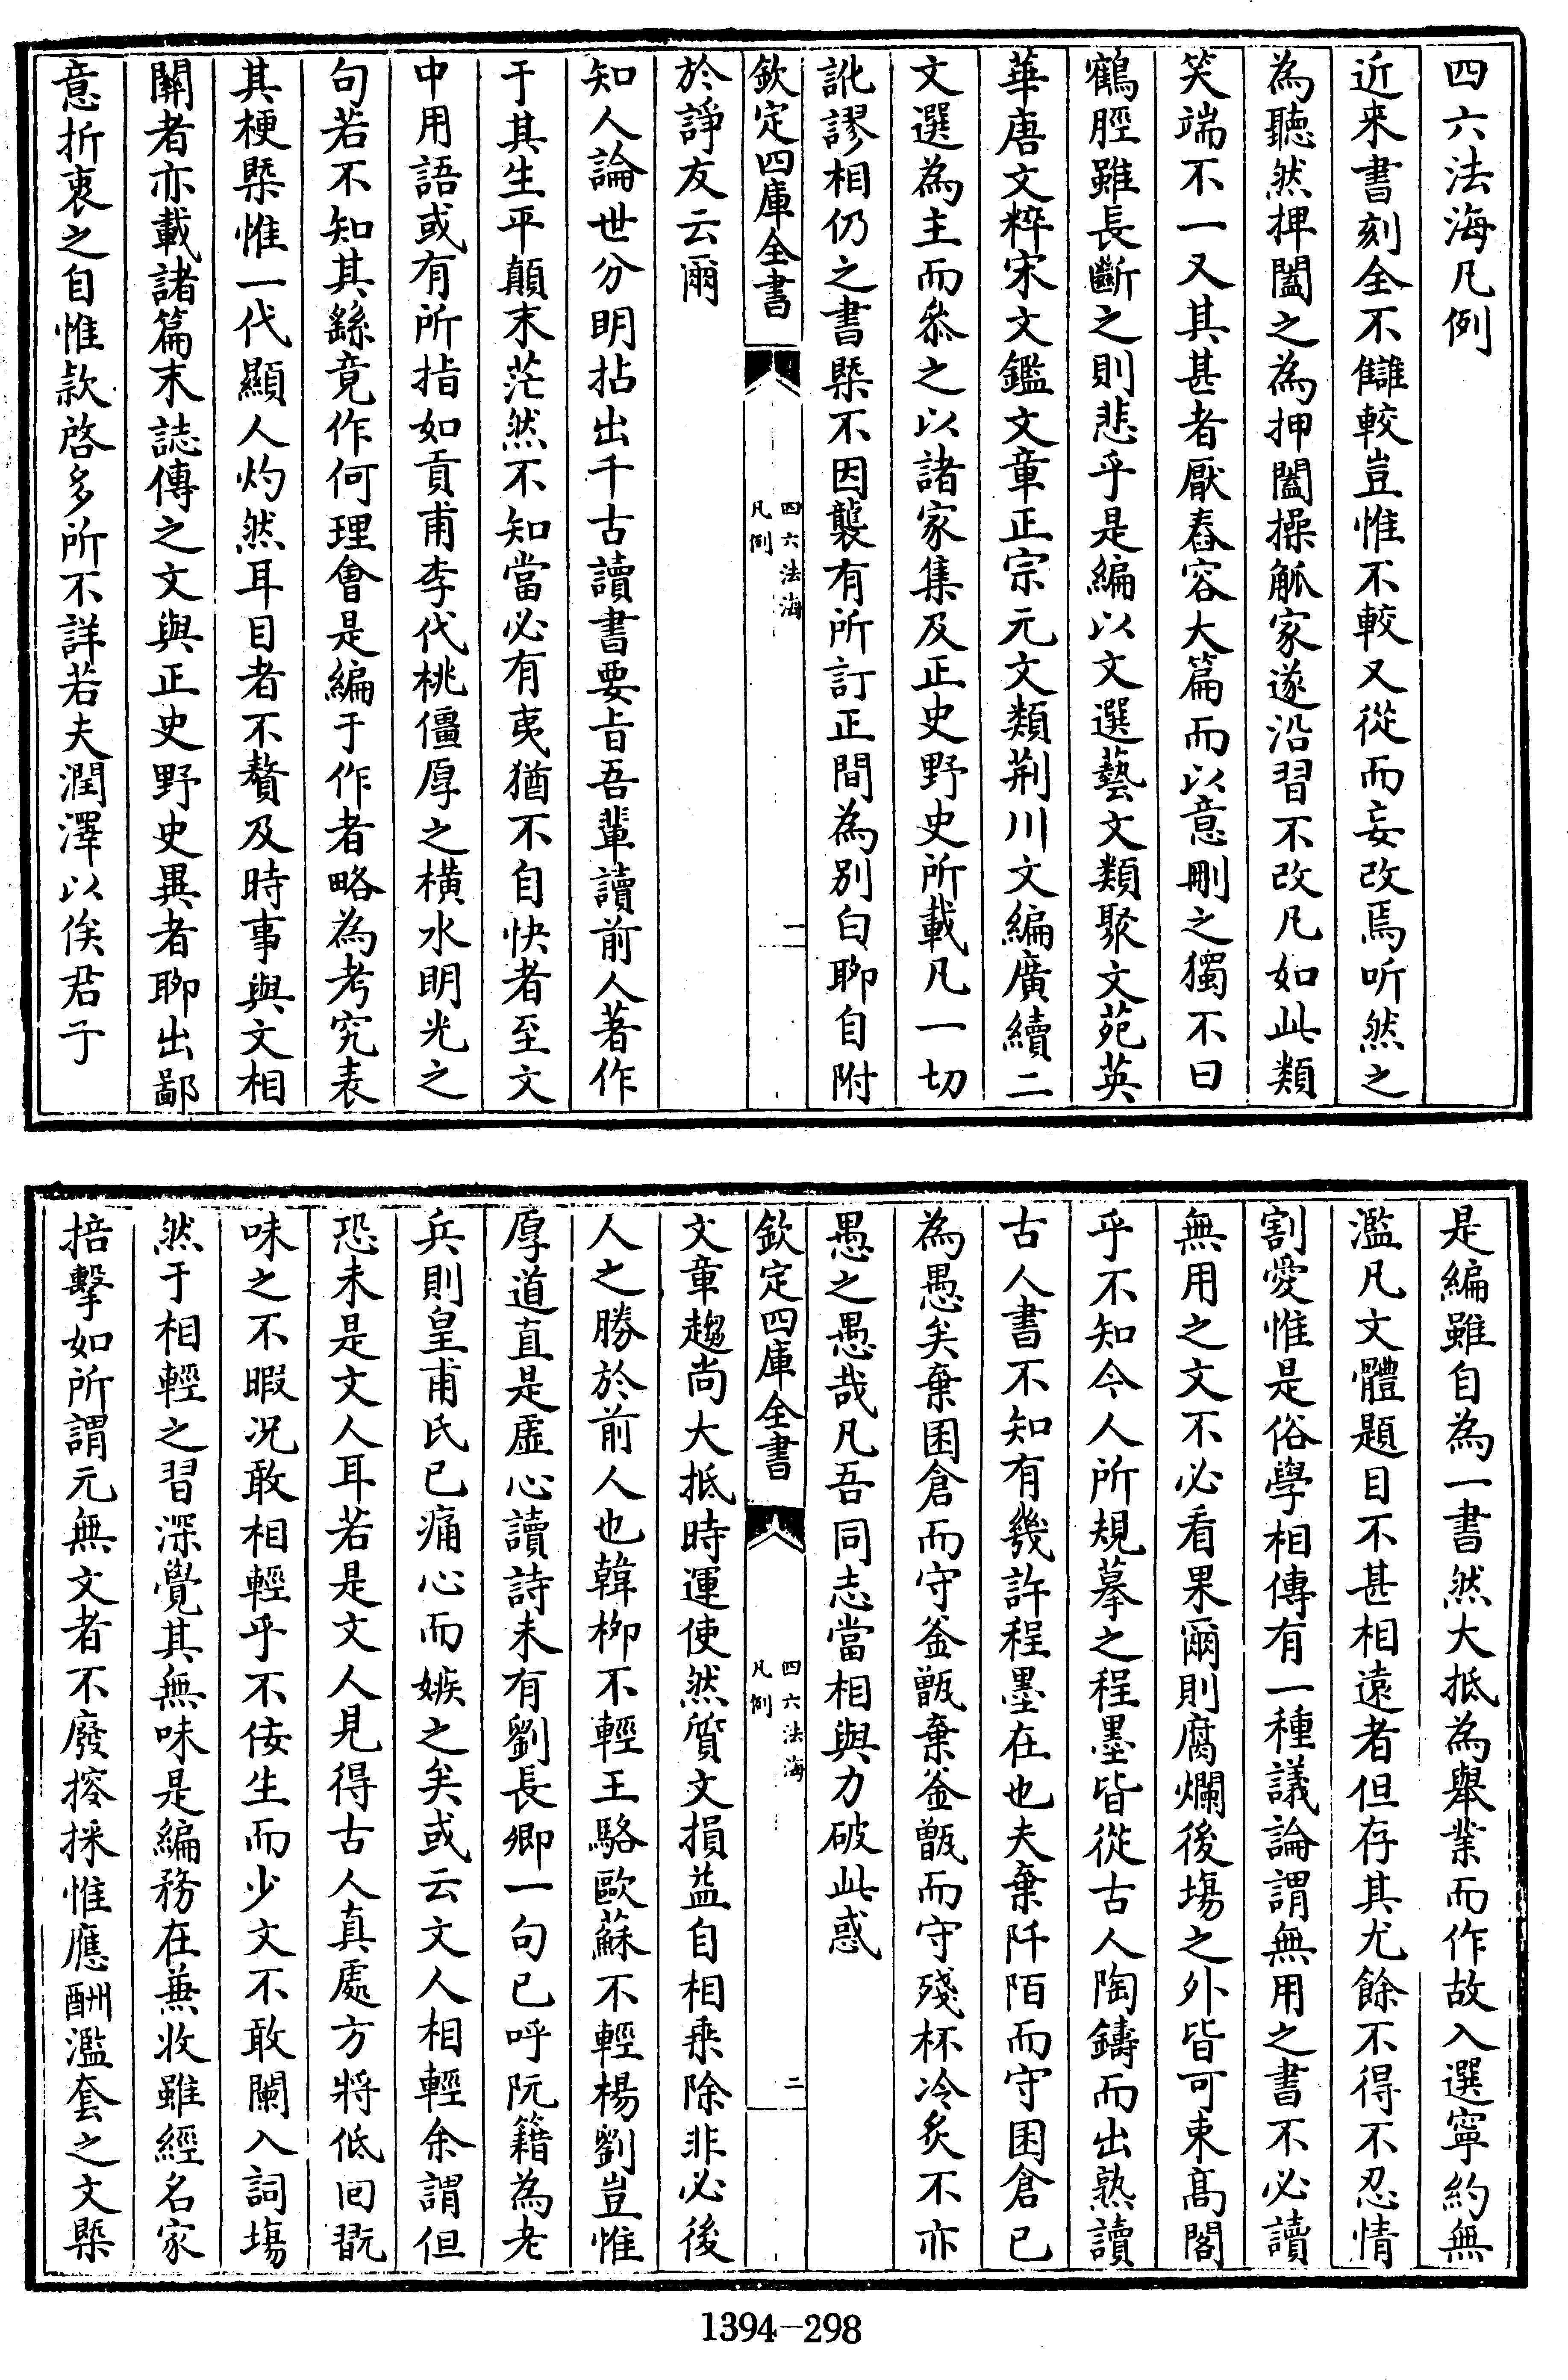 四六法海凡例
近来書刻全不讎較豈惟不較又從而妄改焉听然之
為聽然捭闔之為押闔操觚家遂沿習不改凡如此類
笑端不一又其甚者厭舂容大篇而以意刪之獨不曰
鶴脛雖長斷之則悲乎是編以文選藝文類聚文苑英
華唐文粹宋文鑑文章正宗元文類荆川文編廣續二
文選為主而叅之以諸家集及正史野史所載凡一切
訛謬相仍之書槩不因襲有所訂正間為別白聊自附
欽定四庫全書
四六法海
凡例
一
於諍友云爾
知人論世分明拈出千古讀書要旨吾輩讀前人著作
于其生平顛末茫然不知當必有夷猶不自快者至文
中用語或有所指如貢甫李代桃僵厚之横水明光之
句若不知其繇竟作何理會是編于作者略為考究表
其梗槩惟一代顯人灼然耳目者不贅及時事與文相
關者亦載諸篇末誌傳之文與正史野史異者聊出鄙
意折衷之自惟款啓多所不詳若夫潤澤以俟君子
是編雖自為一書然大抵為舉業而作故入選寧約無
濫凡文體題目不甚相遠者但存其尤餘不得不忍情
割愛惟是俗學相傳有一種議論謂無用之書不必讀
無用之文不必看果爾則腐爛後塲之外皆可束髙閣
乎不知今人所規摹之程墨皆從古人陶鑄而出熟讀
古人書不知有幾許程墨在也夫棄阡陌而守囷倉已
為愚矣棄囷倉而守釜甑棄釜甑而守殘杯冷炙不亦
愚之愚哉凡吾同志當相與力破此惑
欽定四庫全書
四六法海
凡例
二
文章趨尚大抵時運使然質文損益自相乗除非必後
人之勝於前人也韓栁不輕王駱歐蘇不輕楊劉豈惟
厚道直是虛心讀詩未有劉長卿一句已呼阮籍為老
兵則皇甫氏已痛心而嫉之矣或云文人相輕余謂但
恐未是文人耳若是文人見得古人真處方將低囘翫
味之不暇况敢相輕乎不佞生而少文不敢闌入詞塲
然于相輕之習深覺其無味是編務在兼收雖經名家
掊擊如所謂元無文者不廢搜採惟應酬濫套之文槩
1394-298